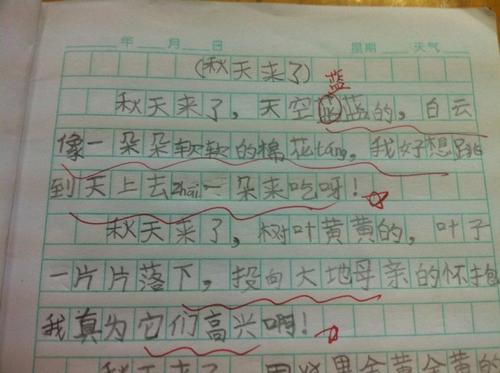 年 月 日 星期 天气
(秋天来了)
蓝
秋天来了，天空蓝蓝的，白云
像一朵朵软软的棉花táng，我好想跳
到天上去zhāi一朵来吃呀！
秋天来了，树叶黄黄的，叶子
一片片落下，投向大地母亲的怀抱
我真为它们高兴啊！
秋天来了，金黄金黄的